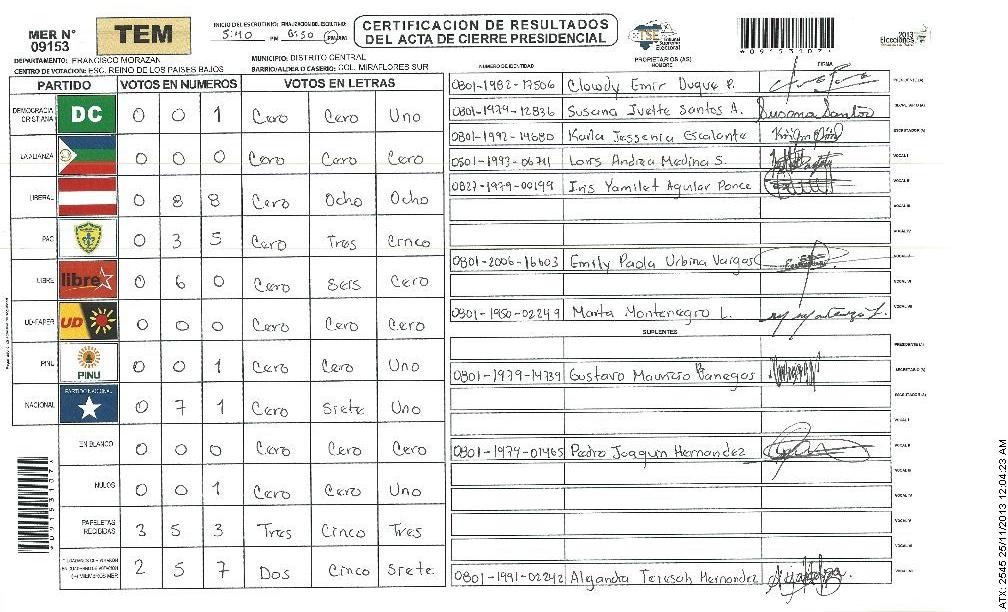 MER N° 09153
TEM
INICIO DEL ESCRUTINIO: 5:40 PM
FINALIZACION DEL ESCRUTINIO: 6:50 PM AM
CERTIFICACION DE RESULTADOS
DEL ACTA DE CIERRE PRESIDENCIAL
TSE Tribunal Supremo Electoral
2013 Elecciones
DEPARTAMENTO: FRANCISCO MORAZAN
MUNICIPIO: DISTRITO CENTRAL
CENTRO DE VOTACION: ESC. REINO DE LOS PAISES BAJOS
BARRIO/ALDEA O CASERIO: COL. MIRAFLORES SUR
PARTIDO VOTOS EN NUMEROS VOTOS EN LETRAS
DEMOCRACIA CRISTIANA DC 0 0 1 Cero Cero Uno
LA ALIANZA 0 0 0 Cero Cero Cero
LIBERAL 0 8 8 Cero Ocho Ocho
PAC 0 3 5 Cero Tres Cinco
LIBRE libre 0 6 0 Cero Seis Cero
UD-FAPER UD 0 0 0 Cero Cero Cero
PINU PINU 0 0 1 Cero Cero Uno
NACIONAL PARTIDO NACIONAL 0 7 1 Cero Siete Uno
EN BLANCO 0 0 0 Cero Cero Cero
NULOS 0 0 1 Cero Cero Uno
PAPELETAS RECIBIDAS 3 5 3 Tres Cinco Tres
2 5 7 Dos Cinco Siete
NUMERO DE IDENTIDAD PROPIETARIOS (AS) NOMBRE FIRMA
0801-1982-17506 Clowdy Emir Duque P. PRESIDENTE (A)
0801-1979-12836 Susana Ivette Santos A. Susana Santos SECRETARIO (A)
0801-1992-14680 Karla Jessenia Escalante ESCRUTADOR (A)
0801-1993-06711 Loris Andrea Medina S. VOCAL I
0827-1979-00199 Iris Yamilet Aguilar Ponce VOCAL II
VOCAL III
VOCAL IV
0801-2006-16603 Emily Paola Urbina Vargas VOCAL V
VOCAL VI
0801-1950-02249 Marta Montenegro L. VOCAL VII
SUPLENTES
PRESIDENTE (A)
0801-1979-14739 Gustavo Mauricio Banegas SECRETARIO (A)
ESCRUTADOR (A)
VOCAL I
0801-1974-01465 Pedro Joaquin Hernandez VOCAL II
VOCAL III
VOCAL IV
VOCAL V
VOCAL VI
0801-1991-02242 Alejandra Teresah Hernandez VOCAL VII
ATX: 2545 25/11/2013 12:04:23 AM